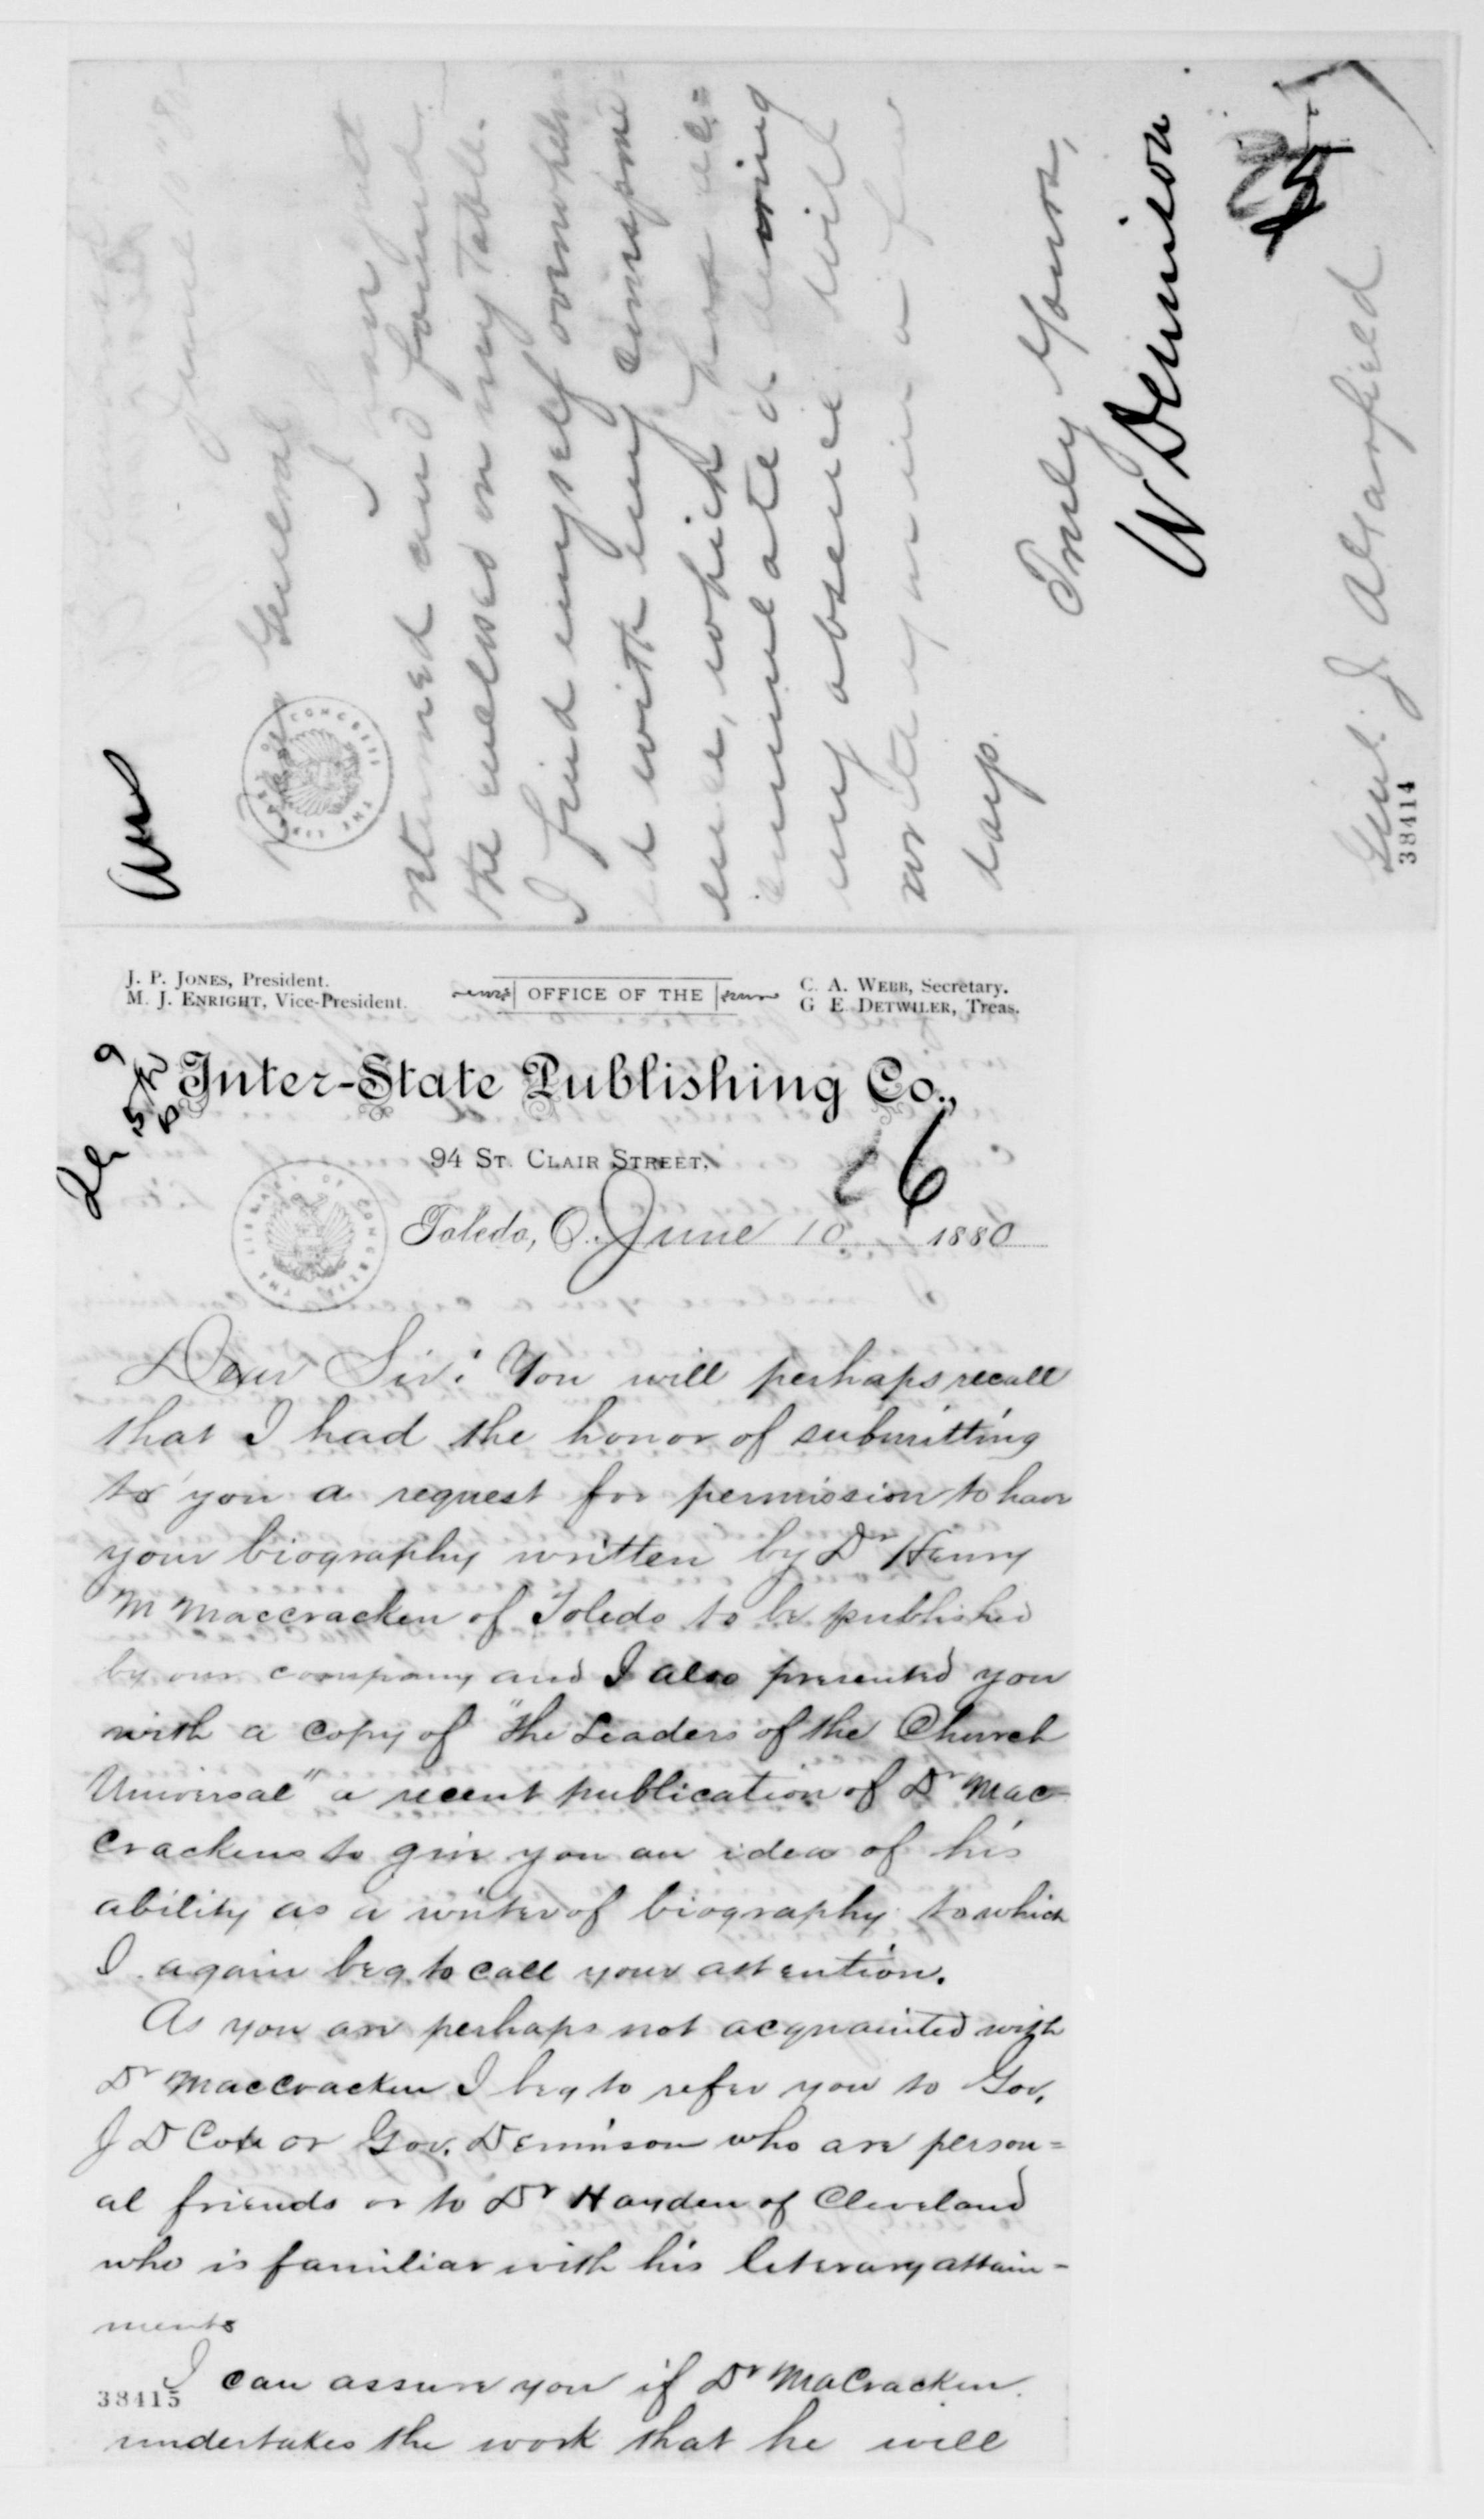 Ans
June
Dear General
I am just
returned and found
the enclosed on my table.
I find myself overwhelm=
ed with my correspond=
ence, which has ac=
cumulated during
my absence. Will
write you in a few
days.
Truly Yours,
W Dennison
Genl. J A Garfield
38414
J. P. JONES, President.
M. J. ENRIGHT, Vice-President.
OFFICE OF THE
C. A. WEBB, Secretary.
G E DETWILER, Treas.
Inter-State Publishing Co.,
94 ST. CLAIR STREET.
6
THE LIBRARY OF CONGRESS
Toledo, O. June 10 1880
Dear Sir: You will perhaps recall
that I had the honor of submitting
to you a request for permission to have
your biography written by Dr Henry
M Maccracken of Toledo to be published
by our company and I also presented you
with a copy of "The Leaders of the Church
Universal" a recent publication of Dr Mac-
crackens to give you an idea of his
ability as a writer of biography to which
I again beg to call your attention.
As you are perhaps not acquainted with
Dr MacCracken I beg to refer you to Gov.
J D Cox or Gov. Dennison who are person=
al friends or to Dr Hayden of Cleveland
who is familiar with his literary attain-
ments
I can assure you if Dr MaCracken
38415
undertakes the work that he will